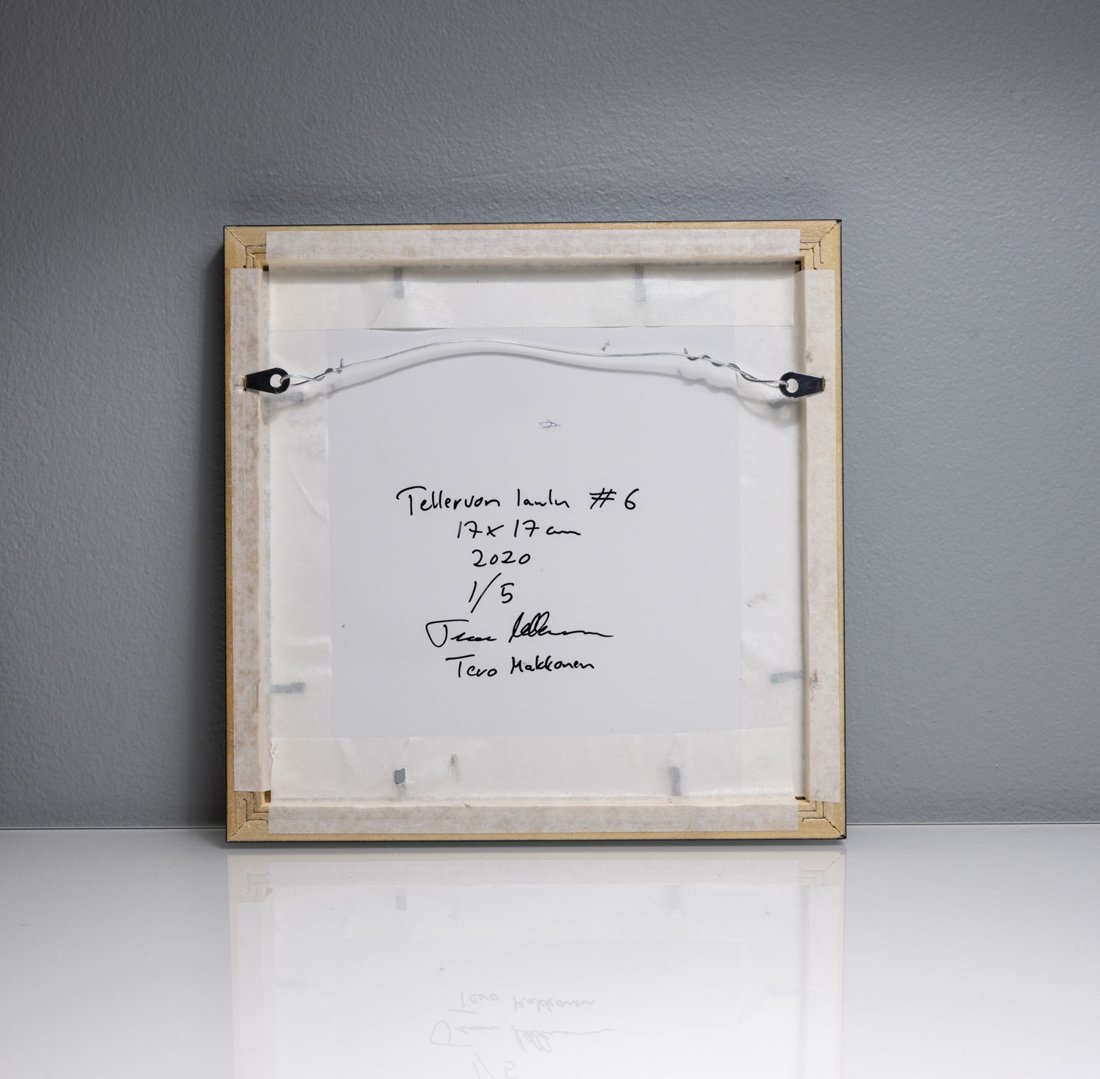 Tellervon laulu #6
17x17 cm
2020
1/5
Tero Makkonen